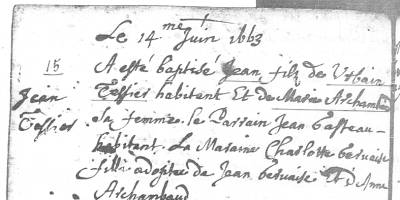 Le 14me Juin 1663
15
Jean
Tessier
A esté baptisé Jean filz de Urbain
Tessier habitant Et de Marie Archambau
sa femme. le Parrain Jean Gasteau
habitant. La Maraine Charlotte Gervaise
fille adoptée de Jean Gervaise Et d'Anne
Archambaud